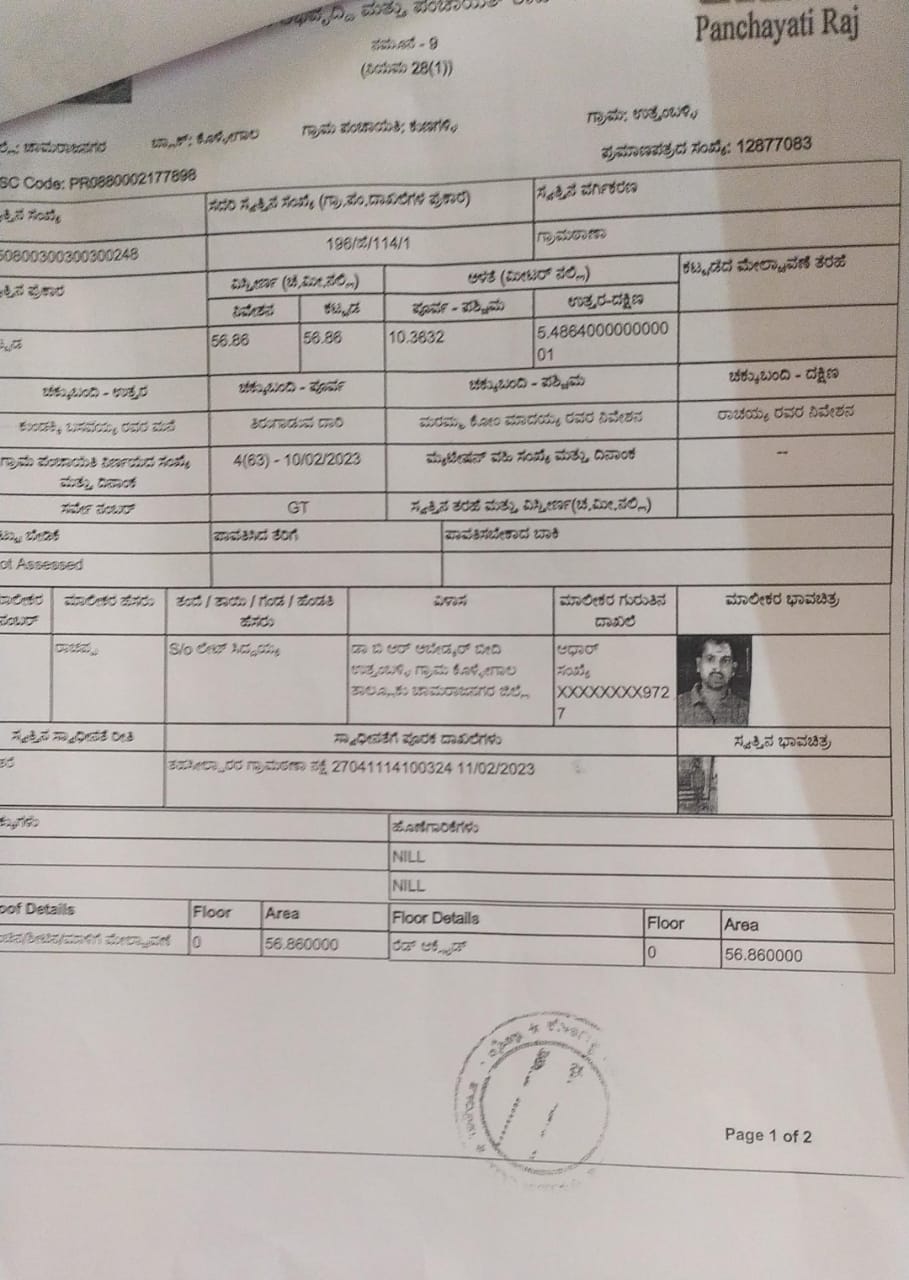 ಮತ್ತು ಪಂಚಾಯತ್ ರಾಜ
Panchayati Raj
ನಮೂನೆ - 9
(ನಿಯಮ 28(1))
ಚಾಮರಾಜನಗರ ಬ್ಲಾಕ್: ಕೊಳ್ಳೇಗಾಲ ಗ್ರಾಮ ಪಂಚಾಯತಿ: ಕುಣಗಳ್ಳಿ ಗ್ರಾಮ: ಉತ್ತಂಬಳ್ಳಿ
ಪ್ರಮಾಣಪತ್ರದ ಸಂಖ್ಯೆ: 12877083
SC Code: PR0880002177898
ಸಂಖ್ಯೆ ಸದರಿ ಸ್ವತ್ತಿನ ಸಂಖ್ಯೆ (ಗ್ರಾ.ಪಂ.ದಾಖಲೆಗಳ ಪ್ರಕಾರ) ಸ್ವತ್ತಿನ ವರ್ಗೀಕರಣ
50800300300300248 196/ಜೆ/114/1 ಗ್ರಾಮಠಾಣಾ
ಪ್ರಕಾರ ವಿಸ್ತೀರ್ಣ (ಚ.ಮೀ.ನಲ್ಲಿ) ಅಳತೆ (ಮೀಟರ್ ನಲ್ಲಿ) ಕಟ್ಟಡದ ಮೇಲ್ಛಾವಣಿ ತರಹೆ
ನಿವೇಶನ ಕಟ್ಟಡ ಪೂರ್ವ - ಪಶ್ಚಿಮ ಉತ್ತರ-ದಕ್ಷಿಣ
56.86 56.86 10.3632 5.4864000000000
01
ಚಕ್ಕುಬಂದಿ - ಉತ್ತರ ಚಕ್ಕುಬಂದಿ - ಪೂರ್ವ ಚಕ್ಕುಬಂದಿ - ಪಶ್ಚಿಮ ಚಕ್ಕುಬಂದಿ - ದಕ್ಷಿಣ
ಬಸವಯ್ಯ ರವರ ಮನೆ ತಿರುಗಾಡುವ ದಾರಿ ಮರಮ್ಮ ಕೋಂ ಮಾದಯ್ಯ ರವರ ನಿವೇಶನ ರಾಚಯ್ಯ ರವರ ನಿವೇಶನ
ಗ್ರಾಮ ಪಂಚಾಯತಿ ನಿರ್ಣಯದ ಸಂಖ್ಯೆ 4(63) - 10/02/2023 ಮ್ಯುಟೇಷನ್ ವಹಿ ಸಂಖ್ಯೆ ಮತ್ತು ದಿನಾಂಕ --
ಮತ್ತು ದಿನಾಂಕ
ಸರ್ವೆ ನಂಬರ್ GT ಸ್ವತ್ತಿನ ತರಹೆ ಮತ್ತು ವಿಸ್ತೀರ್ಣ(ಚ.ಮೀ.ನಲ್ಲಿ)
ಬೇಡಿಕೆ ಪಾವತಿಸಿದ ತೆರಿಗೆ ಪಾವತಿಸಬೇಕಾದ ಬಾಕಿ
ot Assessed
ಮಾಲೀಕರ ಹೆಸರು ತಂದೆ / ತಾಯಿ / ಗಂಡ / ಹೆಂಡತಿ ವಿಳಾಸ ಮಾಲೀಕರ ಗುರುತಿನ ಮಾಲೀಕರ ಭಾವಚಿತ್ರ
ನಂಬರ್ ಹೆಸರು ದಾಖಲೆ
ರಾಚಪ್ಪ S/o ಲೇಟ್ ಸಿದ್ದಯ್ಯ ಡಾ ಬಿ ಆರ್ ಅಂಬೇಡ್ಕರ್ ಬೀದಿ ಆಧಾರ್
ಉತ್ತಂಬಳ್ಳಿ ಗ್ರಾಮ ಕೊಳ್ಳೇಗಾಲ ಸಂಖ್ಯೆ
ತಾಲ್ಲೂಕು ಚಾಮರಾಜನಗರ ಜಿಲ್ಲೆ XXXXXXXX972
7
ಸ್ವತ್ತಿನ ಸ್ವಾಧೀನತೆ ರೀತಿ ಸ್ವಾಧೀನತೆಗೆ ಪೂರಕ ದಾಖಲೆಗಳು ಸ್ವತ್ತಿನ ಭಾವಚಿತ್ರ
ತಹಸೀಲ್ದಾರರ ಗ್ರಾಮಠಾಣಾ ನಕ್ಷೆ 27041114100324 11/02/2023
ಹೊಣೆಗಾರಿಕೆಗಳು
NILL
NILL
oof Details Floor Area Floor Details Floor Area
ಮೇಲ್ಛಾವಣಿ 0 56.860000 ರೆಡ್ ಆಕ್ಸೈಡ್ 0 56.860000
Page 1 of 2